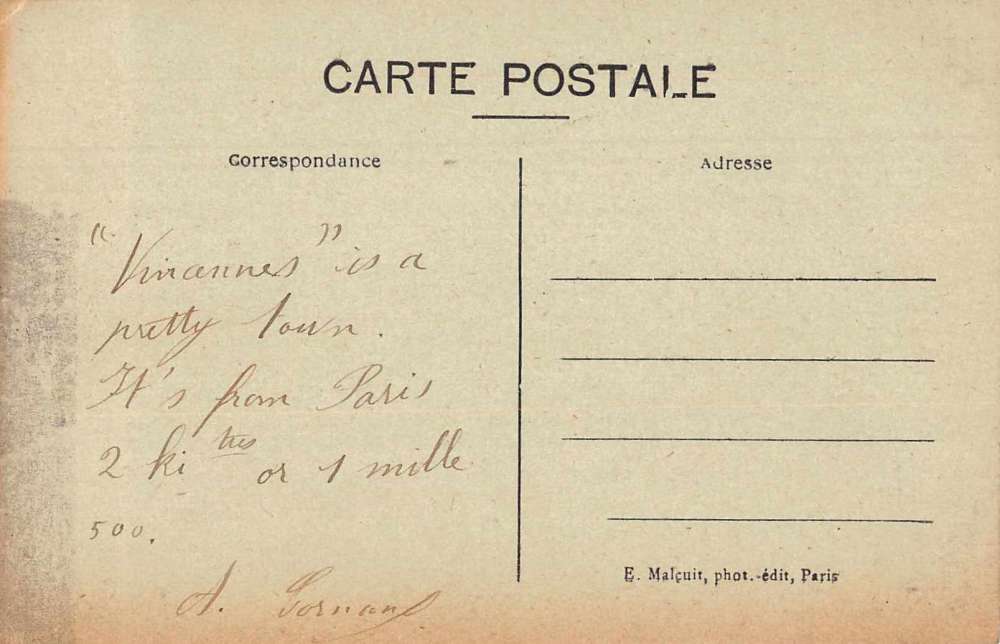 CARTE POSTALE
Correspondance
Adresse
"Vincennes" is a
pretty town.
It's from Paris
2 ki tres or 1 mille
500.
A.
E. Malcuit, phot.-édit, Paris